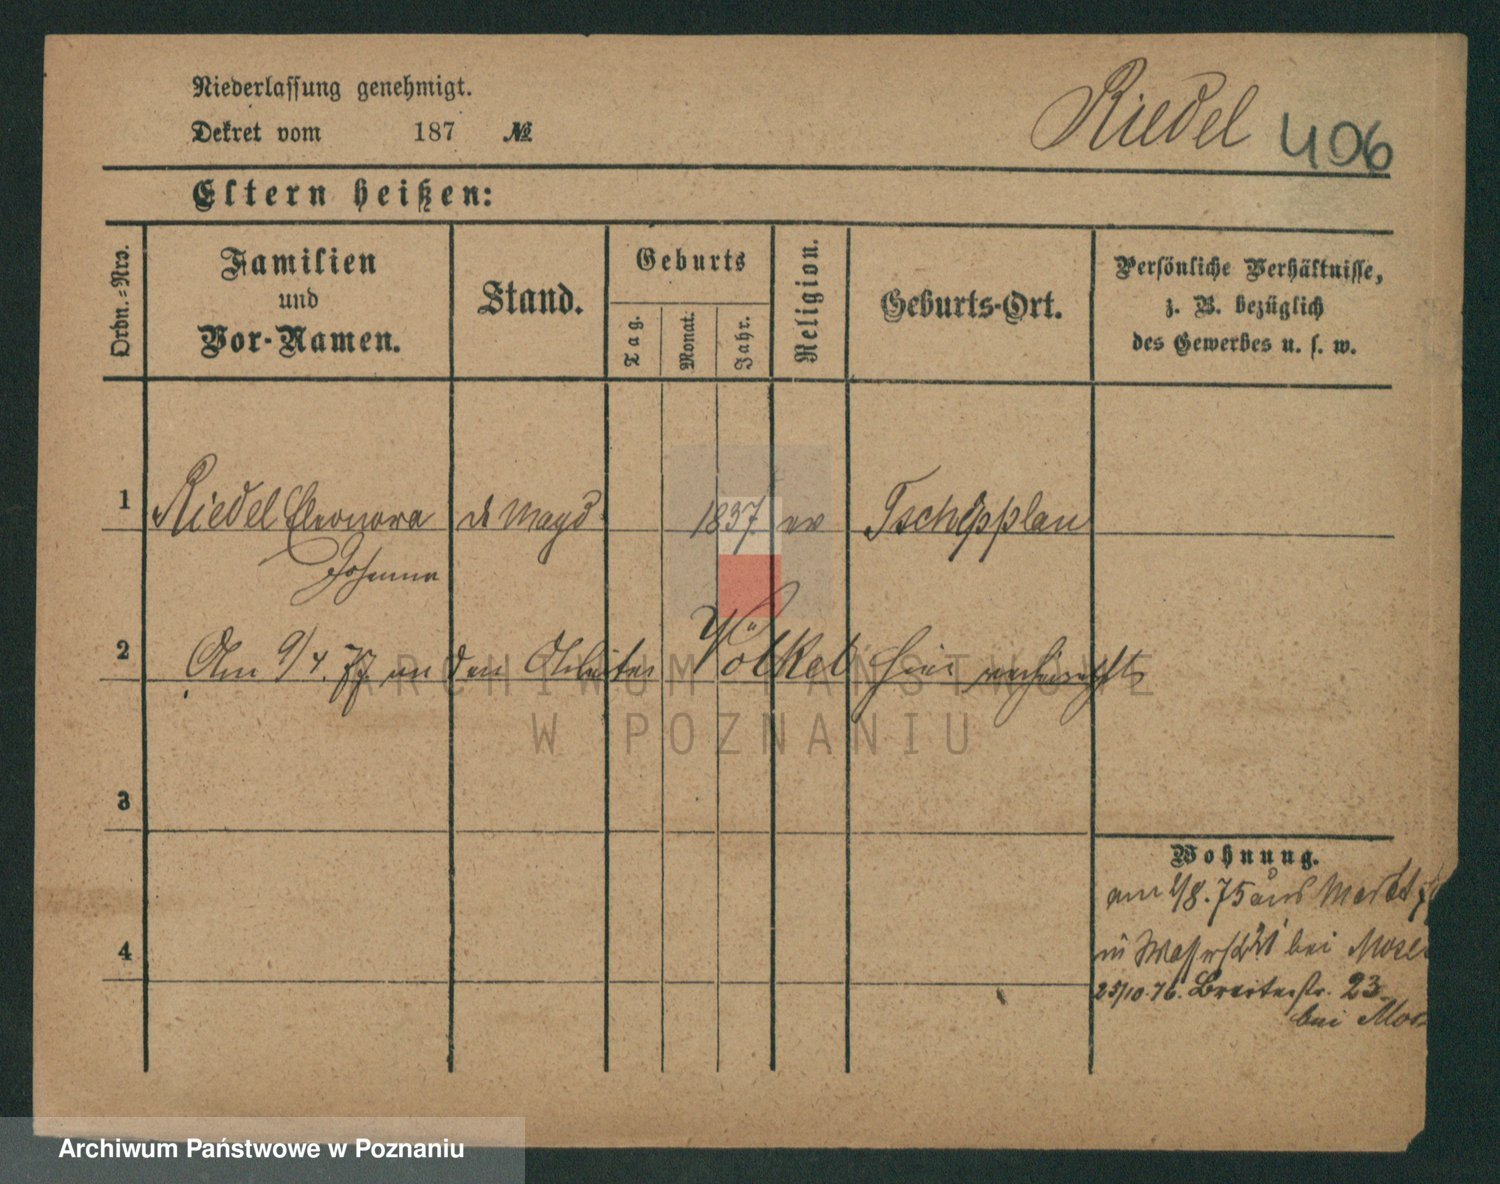 Niederlassung genehmigt.
Riedel 406
Dekret vom 187 №
Eltern heißen:
Ordn.-Nro.
Familien
und
Vor-Namen.
Stand.
Geburts
Tag.
Monat.
Jahr.
Religion.
Geburts-Ort.
Persönliche Verhältnisse,
z. B. bezüglich
des Gewerbes u. s. w.
1 Riedel Eleonora Magd 1837 ev Tschöpplau
Johanna
2 Am 9/4.77. an den Arbeiter Völkel hier verheirathet
ARCHIWUM PAŃSTWOWE
W POZNANIU
3
Wohnung.
am 1/8.75 aus Markt
4
in bei
25/10.76. Breitestr. 23
bei
Archiwum Państwowe w Poznaniu